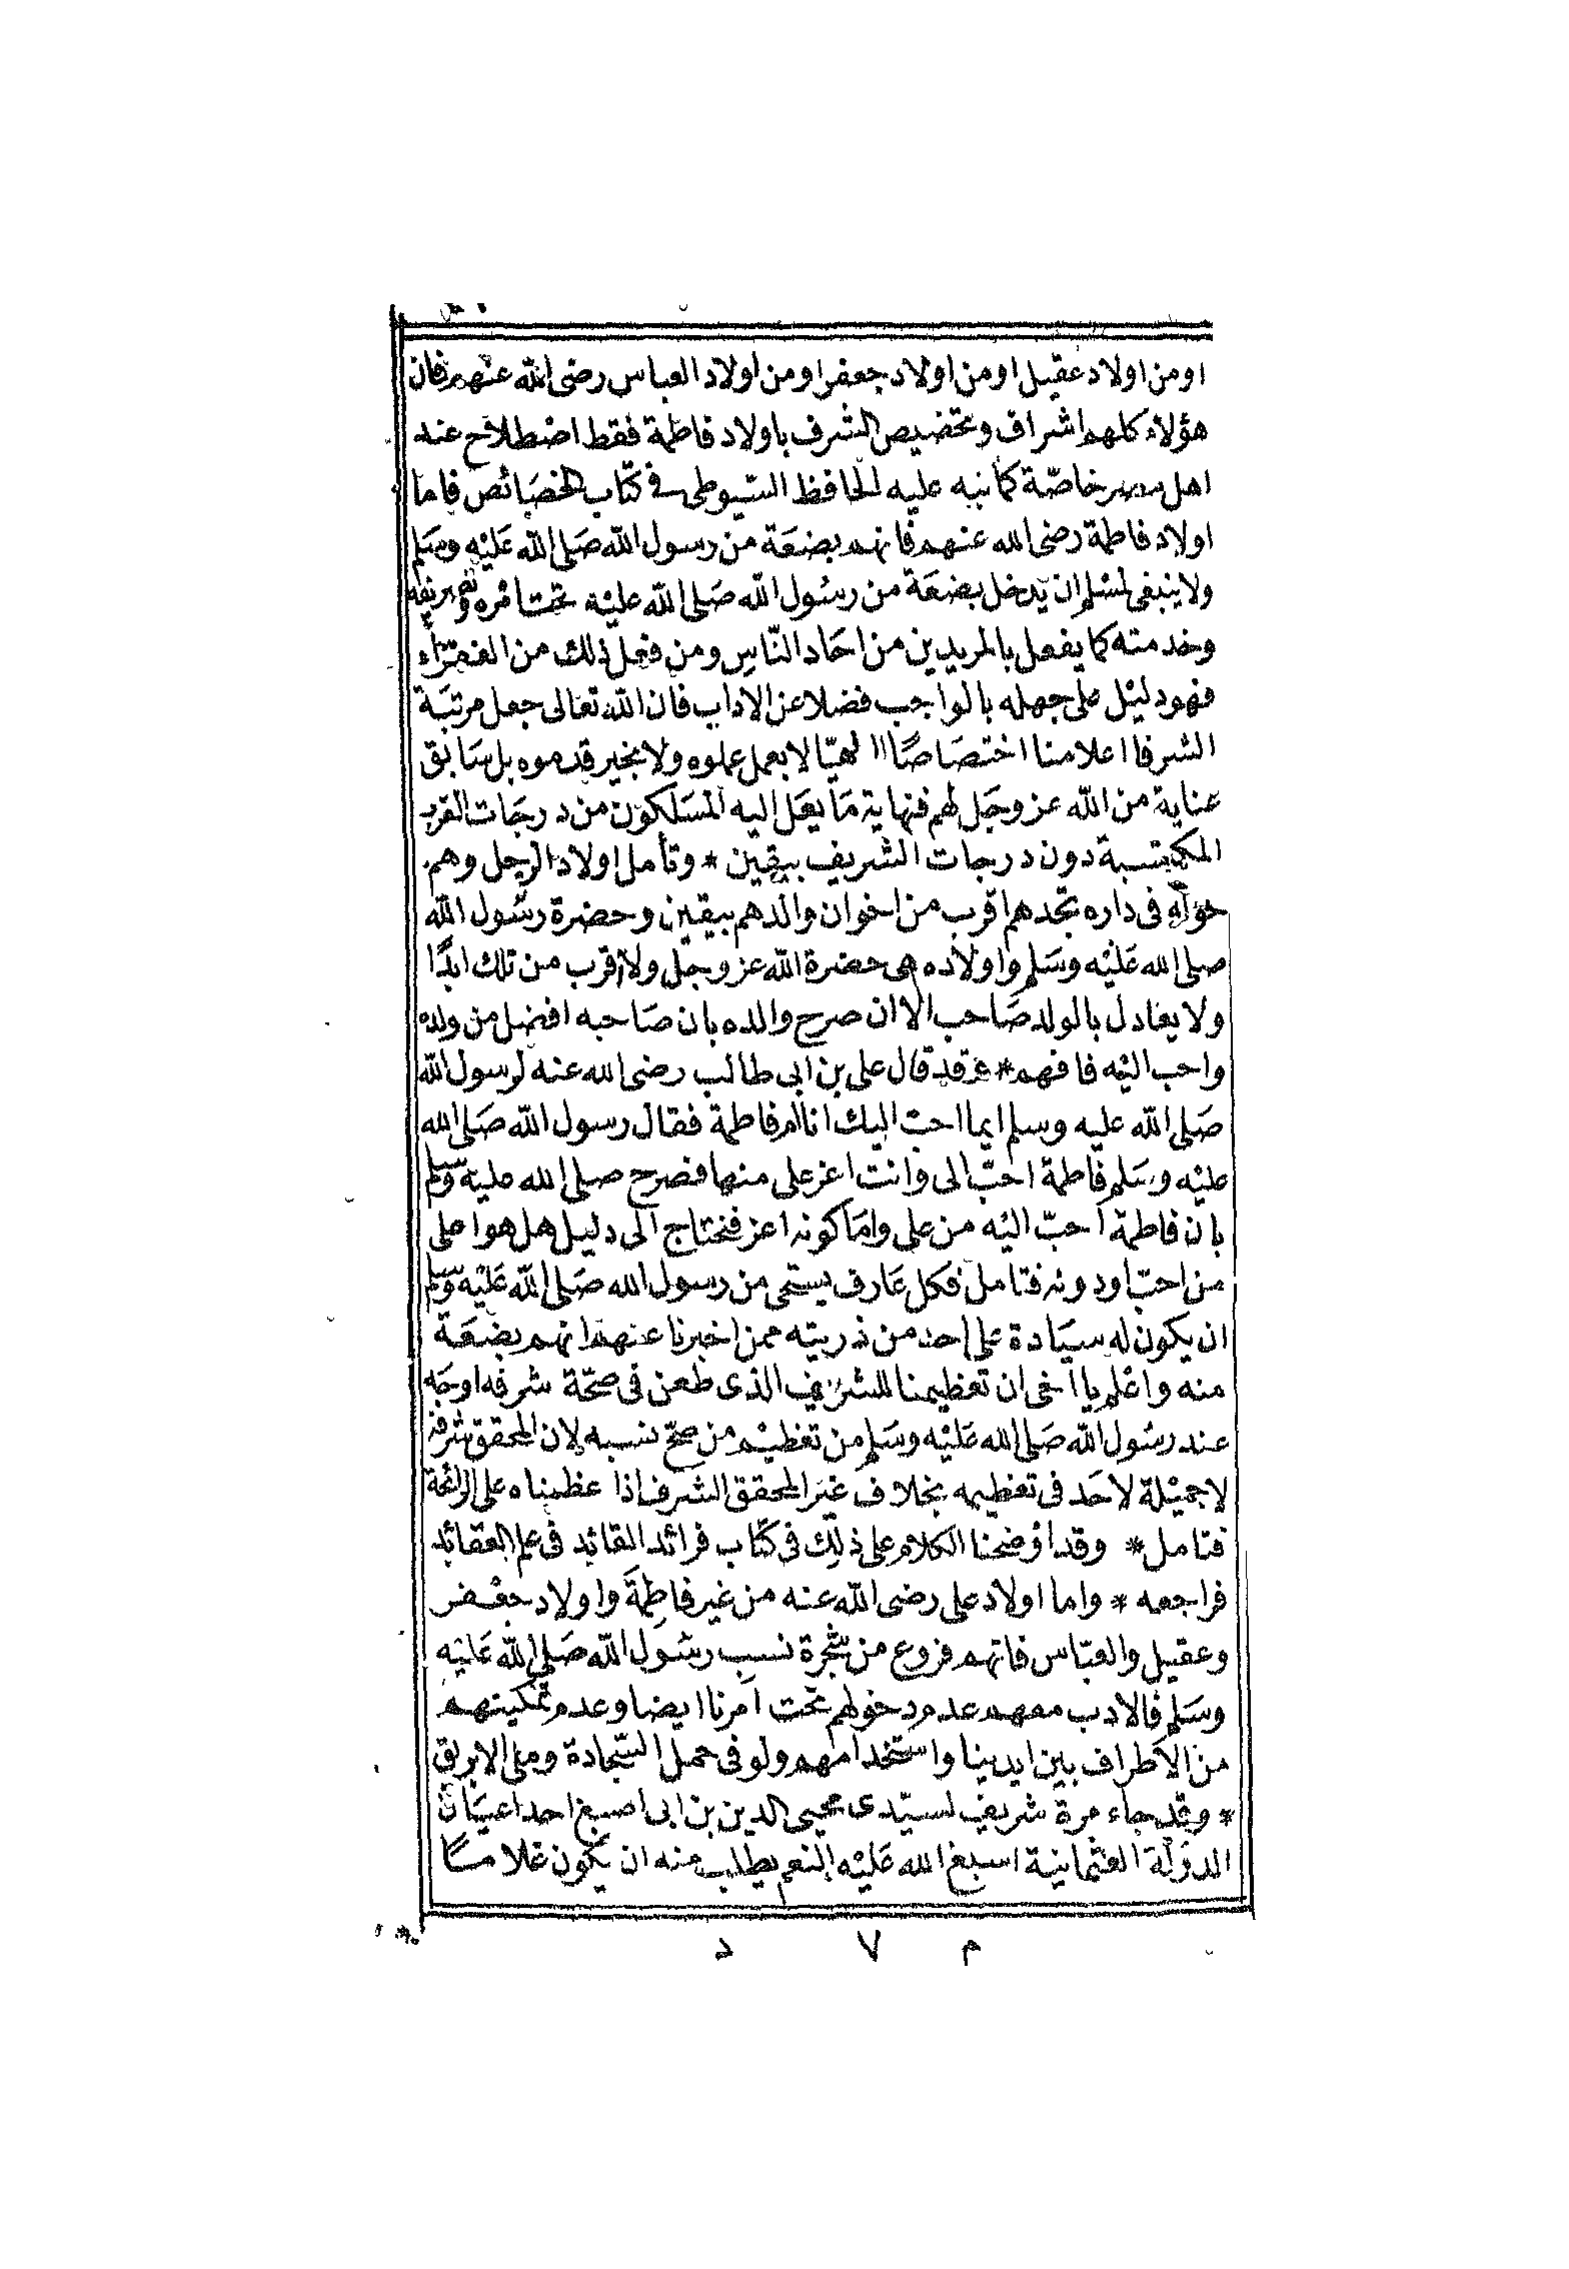 او من اولاد عقيل او من اولاد جعفر او من اولاد العباس رضى الله عنهم فان
هؤلاء كلهم اشراف وتخصيص الشرف باولاد فاطمة فقط اصطلاح عند
اهل مصر خاصّة كما نبه عليه الحافظ السّيوطى فى كتاب الخصَائص فاما
اولاد فاطمة رضى الله عنهم فانهم بضعَة من رسول الله صَلى الله عَليْه وسَلم
ولا ينبغى لمسْلم ان يدخل بضعَة من رسُول الله صَلى الله عليْه تحت امْره وتصريفه
وخدمته كما يفعل بالمريدين من احَاد النّاس ومن فعل ذلك من الفقرَاء
فهو دليْل على جهله بالواجب فضلا عن الاداب فان الله تعالى جعل مرتبَة
الشرفا اعلا منا اختصَاصًا الهيّا لا بعمل عملوه ولا بخير قدموه بل سَابق
عناية من الله عز وجَل لهم فنهاية مَا يصَل اليه المسَلكون من درجَات القرب
المكتسبة دون درجات الشريف بيقين * وتأمل اولاد الرجل وهم
حوْله فى داره تجدهم اقرب من اخوان والدهم بيقين وحضرة رسُول الله
صلى الله عَليْه وسَلم واولاده هى حضرة الله عز وجل ولا اقرب من تلك ابدًا
ولا يعادل بالولد صَاحب الا ان صرح والده بان صَاحبه افضل من ولده
واحب اليْه فافهم * وقد قال على بن ابى طالب رضى الله عنه لرسول الله
صَلى الله عليه وسلم ايما احبّ اليك انا ام فاطمة فقال رسول الله صَلى الله
عليْه وسَلم فاطمة احبّ الى وانت اعز على منها فصرح صلى الله عليه وسّلم
بان فاطمة احبّ اليْه من على وامَا كونه اعز فنحتاج الى دليل هل هو اعلى
من احبّ او دونه فتامل فكل عَارف يستحى من رسول الله صَلى الله عَليْه وسّلم
ان يكون له سيَادة على احد من ذريته ممن اخبرنا عنهم انهم بضعَة
منه واعْلم يا اخى ان تعظيمنا للشريف الذى طعن فى صحّة شرفه اوجَه
عند رسُول الله صَلى الله عَليْه وسَلم من تعظيْم من صحّ نسبه لان المحقق شرفه
لا جميْلة لاحَد فى تعظيمه بخلاف غيَر المحقق الشرف اذا عظمناه على الرائحة
فتامل * وقد اوْضحنا الكلام على ذلك فى كتاب فرائد القلائد فى علم العقائد
فراجعه * واما اولاد على رضى الله عنه من غير فاطِمَة واولاد جعْفر
وعقيل والعبّاس فانهم فروع من شجرة نسب رسُول الله صَلى الله عَليْه
وسَلم فالادب معهم عدم دخولهم تحت امرنا ايضا وعدم تمكينهم
من الاطراف بين ايدينا واستخدامهم ولو فى حمل السّجادة وملى الابريق
* وقد جاء مرة شريف لسيّدى محيى الدين بن ابى اصبغ احد اعيَان
الدوْلة العثمانية اسبغ الله عَليْه النعم يطلب منه ان يكون غلامًا
م ٧ د